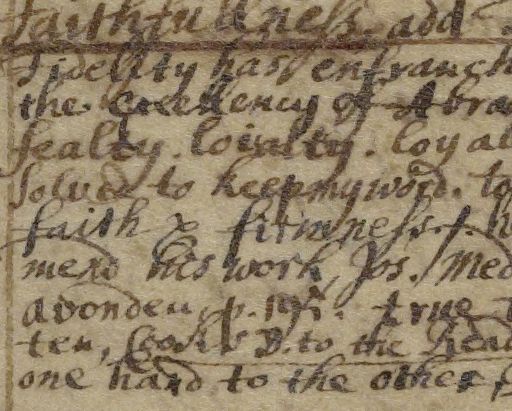 faithfullness. add
Fidelity has enfranch
the Excellency of Abra
fealty. loialty. loyal
solved to keep my word. to
faith & firmness. h
merd his work, Ps. Med
avonden, p. 195. true t
ten, to the head
one hand to the other,